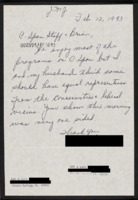 J.M.J.
Feb. 12, 1993
C Span Staff + Brian,
We enjoy most of the
programs on C Span but I
and my husband think some
should have equal representation
from the Conservative + Liberal
versions. Your show this morning
was very one sided
Thank You